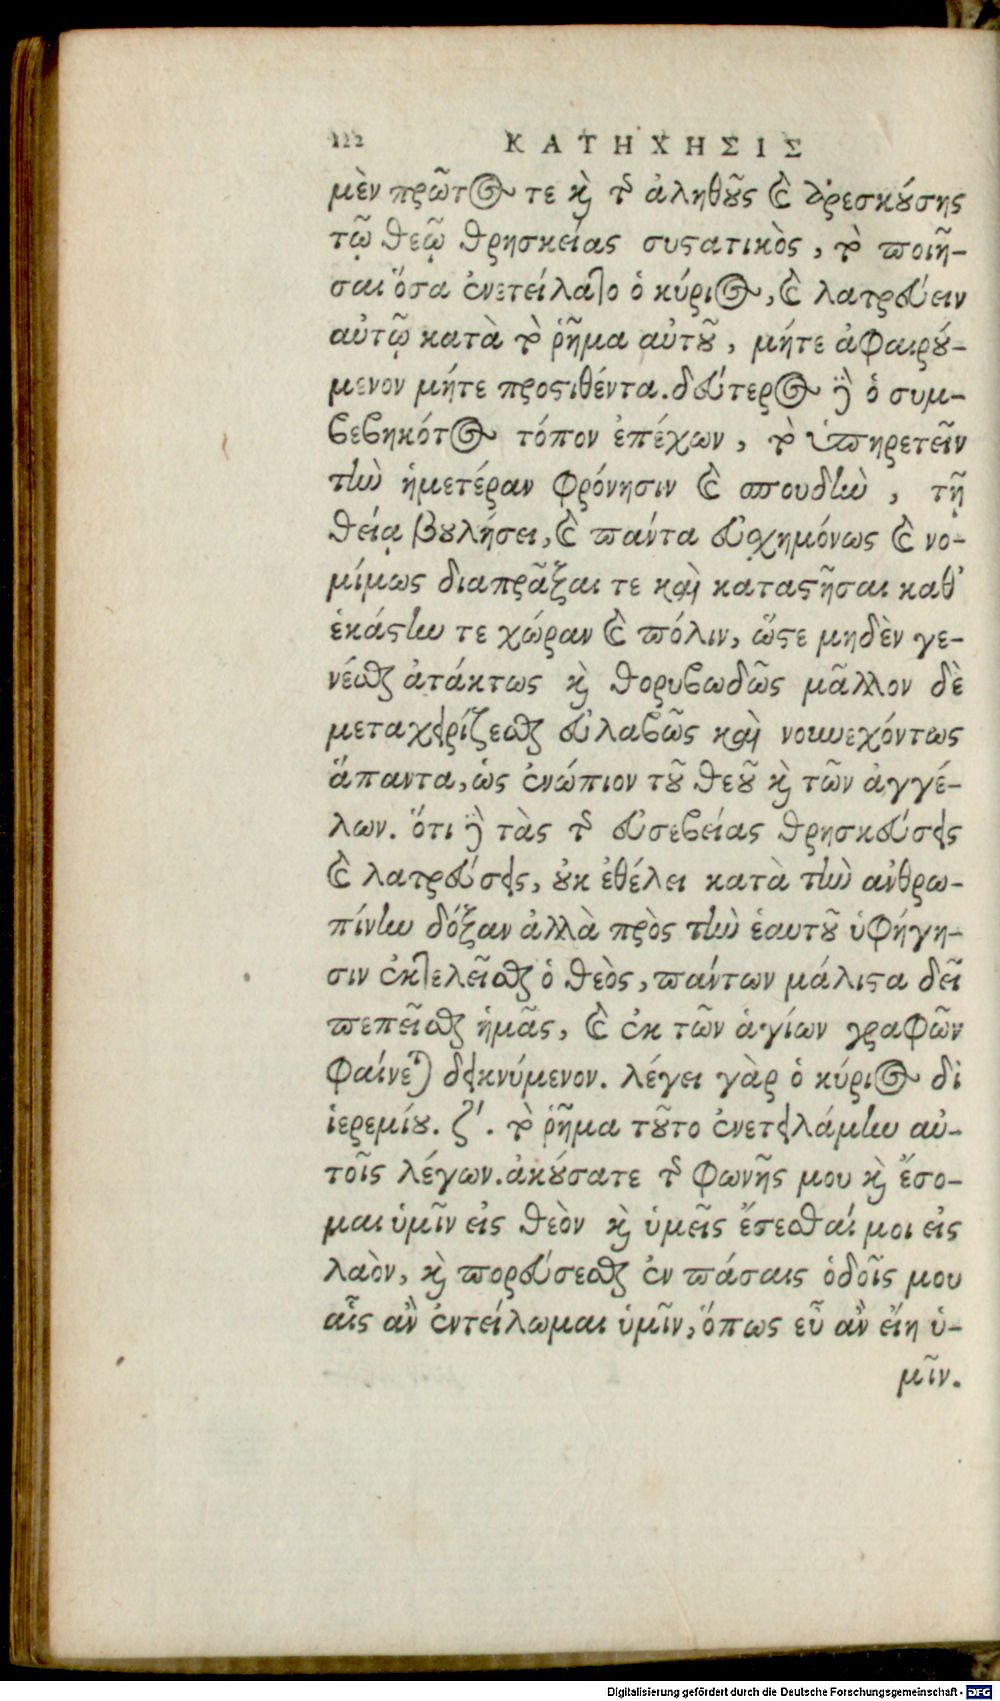 122 ΚΑΤΗΧΗΣΙΣ
μὲν πρῶτος τε καὶ τῆς ἀληθοῦς καὶ ἀρεσκούσης
τῷ θεῷ θρησκείας συστατικὸς, τὸ ποιῆ-
σαι ὅσα ἐνετείλατο ὁ κύριος, καὶ λατρεύειν
αὐτῷ κατὰ τὸ ῥῆμα αὐτοῦ, μήτε ἀφαιρού-
μενον μήτε προστιθέντα. δεύτερος δὲ ὁ συμ-
βεβηκότος τόπον ἐπέχων, τὸ ὑπηρετεῖν
τὴν ἡμετέραν φρόνησιν καὶ σπουδὴν, τῇ
θείᾳ βουλήσει, καὶ πάντα εὐσχημόνως καὶ νο-
μίμως διαπρᾶξαι τε καὶ καταστῆσαι καθ’
ἑκάστην τε χώραν καὶ πόλιν, ὥστε μηδὲν γε-
νέσθαι ἀτάκτως καὶ θορυβωδῶς μᾶλλον δὲ
μεταχειρίζεσθαι εὐλαβῶς καὶ νουνεχόντως
ἅπαντα, ὡς ἐνώπιον τοῦ θεοῦ καὶ τῶν ἀγγέ-
λων. ὅτι δὲ τὰς τῆς εὐσεβείας θρησκεύσεις
καὶ λατρεύσεις, οὐκ ἐθέλει κατὰ τὴν ἀνθρω-
πίνην δόξαν ἀλλὰ πρὸς τὴν ἑαυτοῦ ὑφήγη-
σιν ἐκτελεῖσθαι ὁ θεὸς, πάντων μάλιστα δεῖ
πεπεῖσθαι ἡμᾶς, καὶ ἐκ τῶν ἁγίων γραφῶν
φαίνεται δεικνύμενον. λέγει γὰρ ὁ κύριος δὶ
ἱερεμίου. ζʹ. τὸ ῥῆμα τοῦτο ἐνετειλάμην αὐ-
τοῖς λέγων. ἀκούσατε τῆς φωνῆς μου καὶ ἔσο-
μαι ὑμῖν εἰς θεὸν καὶ ὑμεῖς ἔσεσθαί μοι εἰς
λαὸν, καὶ πορεύσεσθαι ἐν πάσαις ὁδοῖς μου
αἷς ἂν ἐντείλωμαι ὑμῖν, ὅπως εὖ ἂν εἴη ὑ-
μῖν.
Digitalisierung gefördert durch die Deutsche Forschungsgemeinschaft - DFG